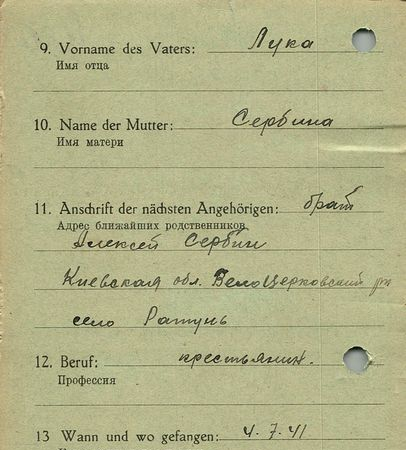 9. Vorname des Vaters: Лука
Имя отца
10. Name der Mutter: Сербина
Имя матери
11. Anschrift der nächsten Angehörigen: брат
Адрес ближайших родственников
Алексей Сербин
Киевская обл. Белоцерковский рн
село
12. Beruf: крестьянин.
Профессия
13 Wann und wo gefangen: 4.7.41